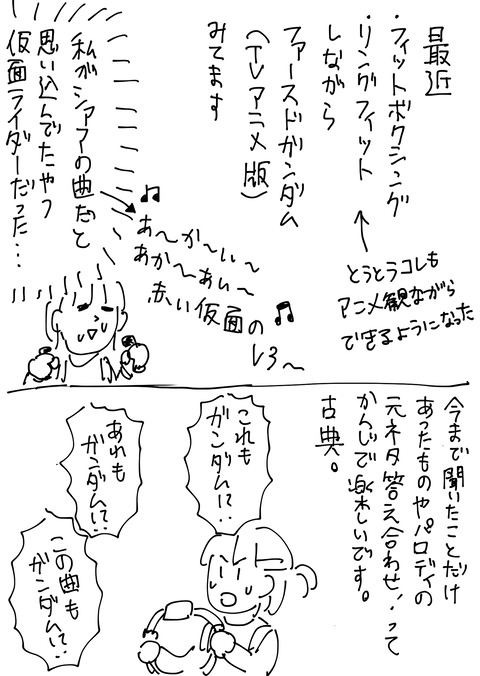 最近
・フィットボクシング
・リングフィット
しながら
ファーストガンダム
(TVアニメ版)
みてます
とうとうコレも
アニメ観ながら
できるようになった
私がシャアの曲だと
思い込んでたやつ
仮面ライダーだった…
♫
あ〜か〜い〜
あか〜あい〜
赤い仮面の
V3〜
♫
今まで聞いたことだけ
あったものやパロディの
元ネタ答え合わせ!って
かんじで楽しいです。
古典。
これも
ガンダム!?
あれも
ガンダム!?
この曲も
ガンダム!?